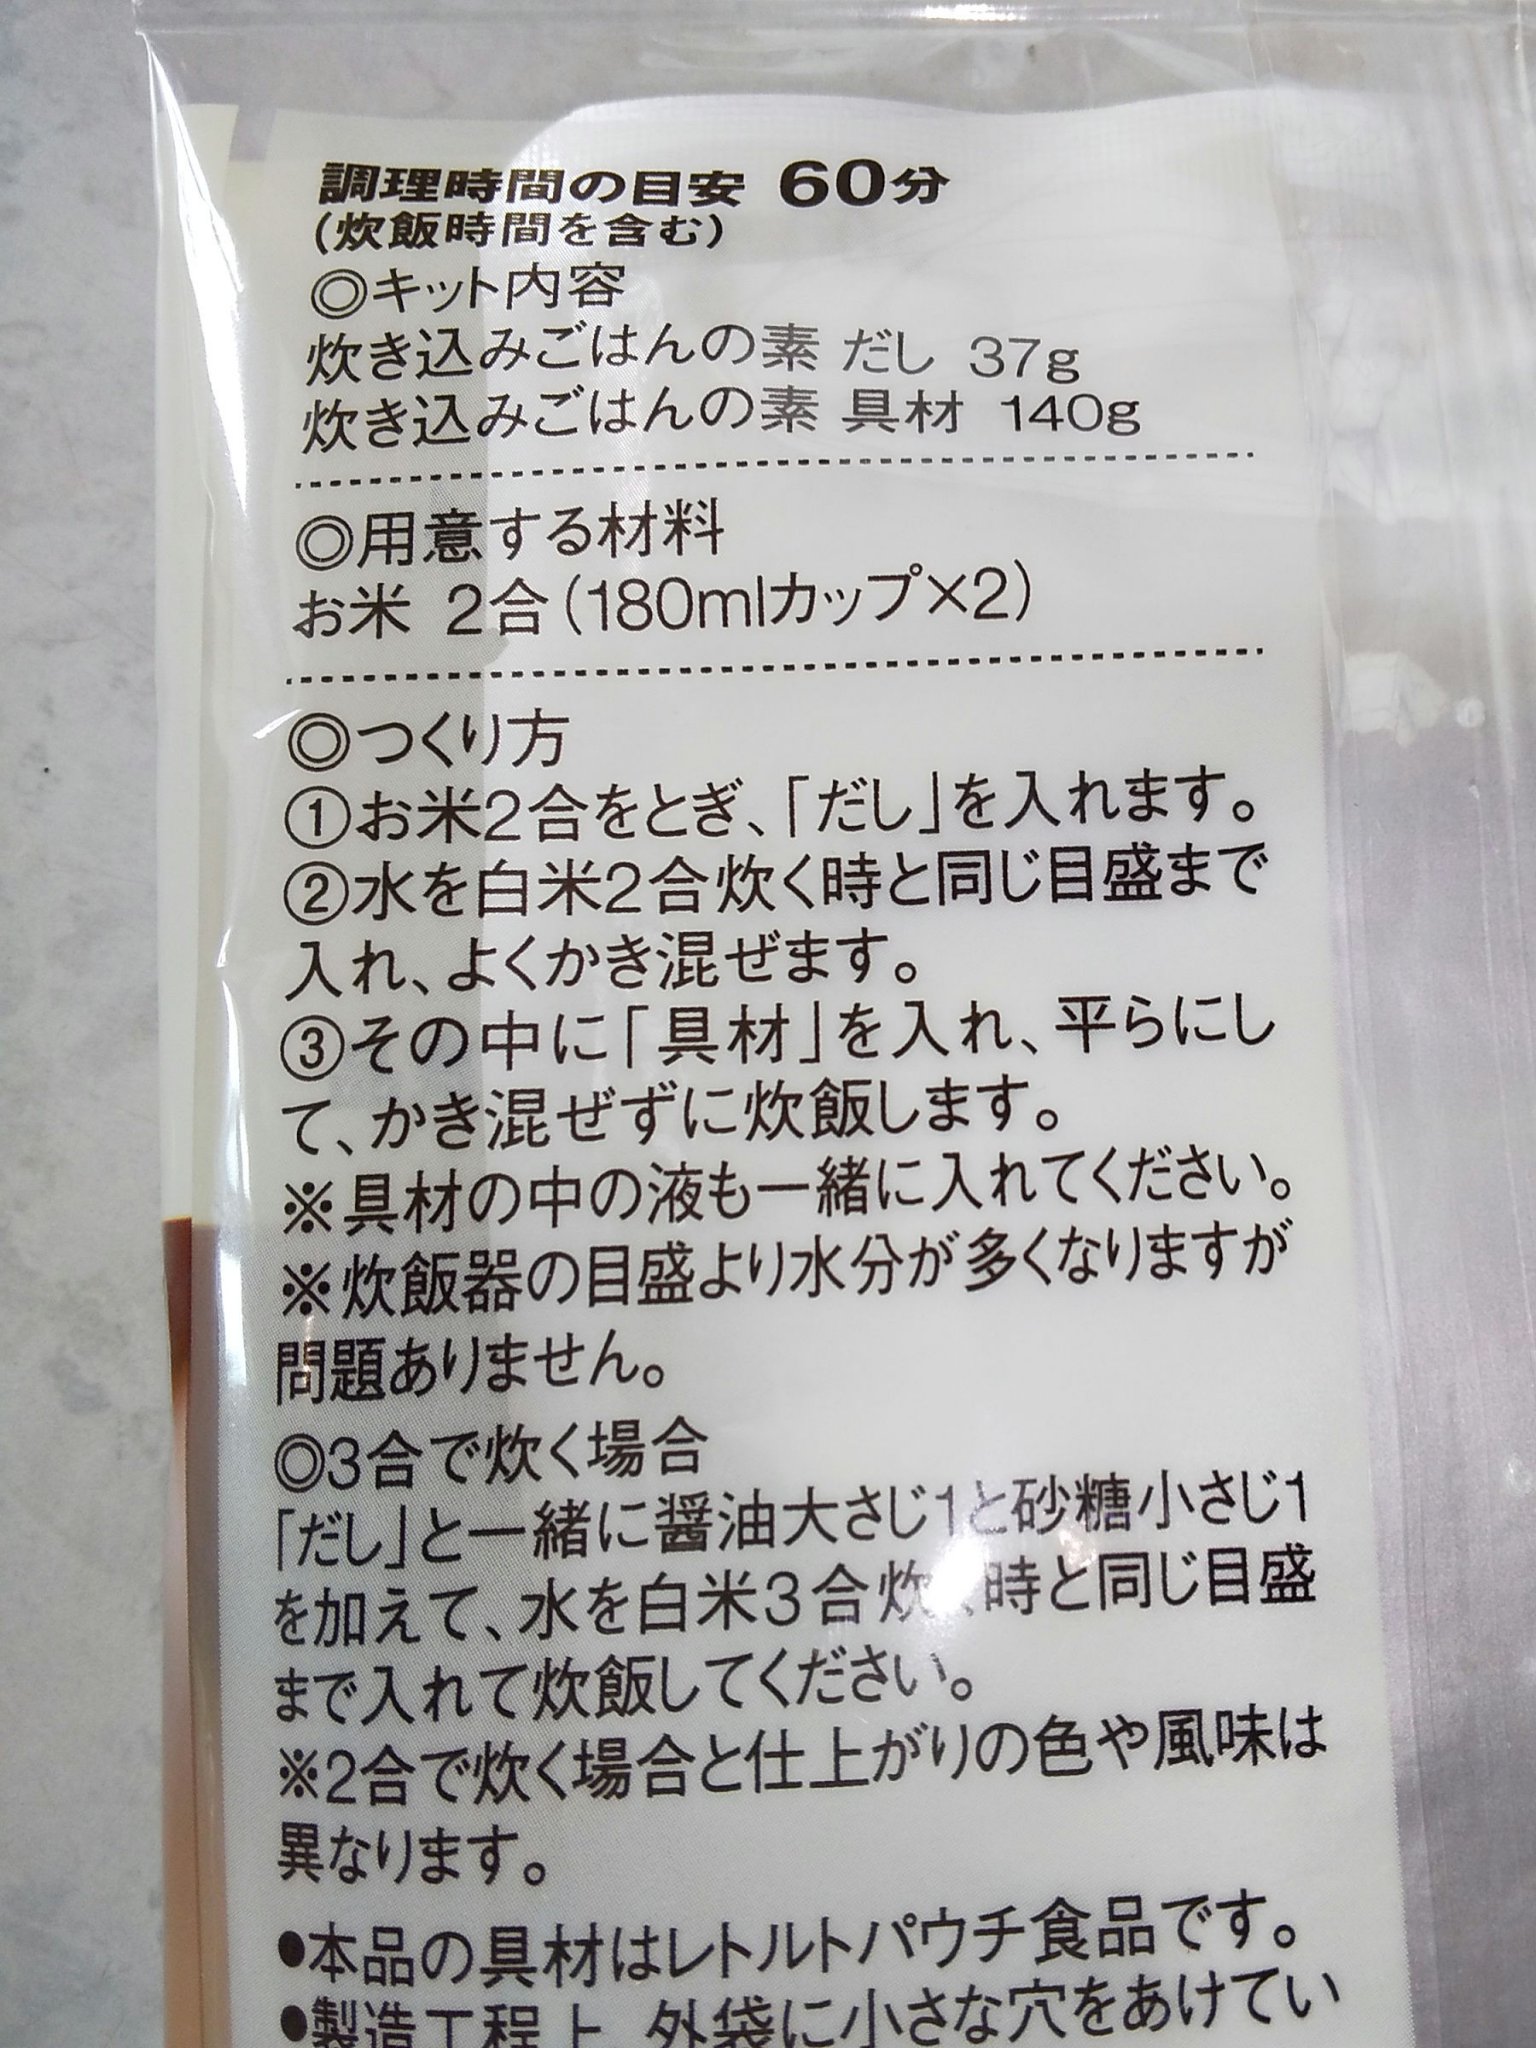 調理時間の目安 60分
(炊飯時間を含む)
◎キット内容
炊き込みごはんの素 だし 37g
炊き込みごはんの素 具材 140g
◎用意する材料
お米 2合(180mlカップ×2)
◎つくり方
①お米2合をとぎ、「だし」を入れます。
②水を白米2合炊く時と同じ目盛まで
入れ、よくかき混ぜます。
③その中に「具材」を入れ、平らにし
て、かき混ぜずに炊飯します。
※具材の中の液も一緒に入れてください。
※炊飯器の目盛より水分が多くなりますが
問題ありません。
◎3合で炊く場合
「だし」と一緒に醤油大さじ1と砂糖小さじ1
を加えて、水を白米3合炊く時と同じ目盛
まで入れて炊飯してください。
※2合で炊く場合と仕上がりの色や風味は
異なります。
●本品の具材はレトルトパウチ食品です。
●製造工程上、外袋に小さな穴をあけてい